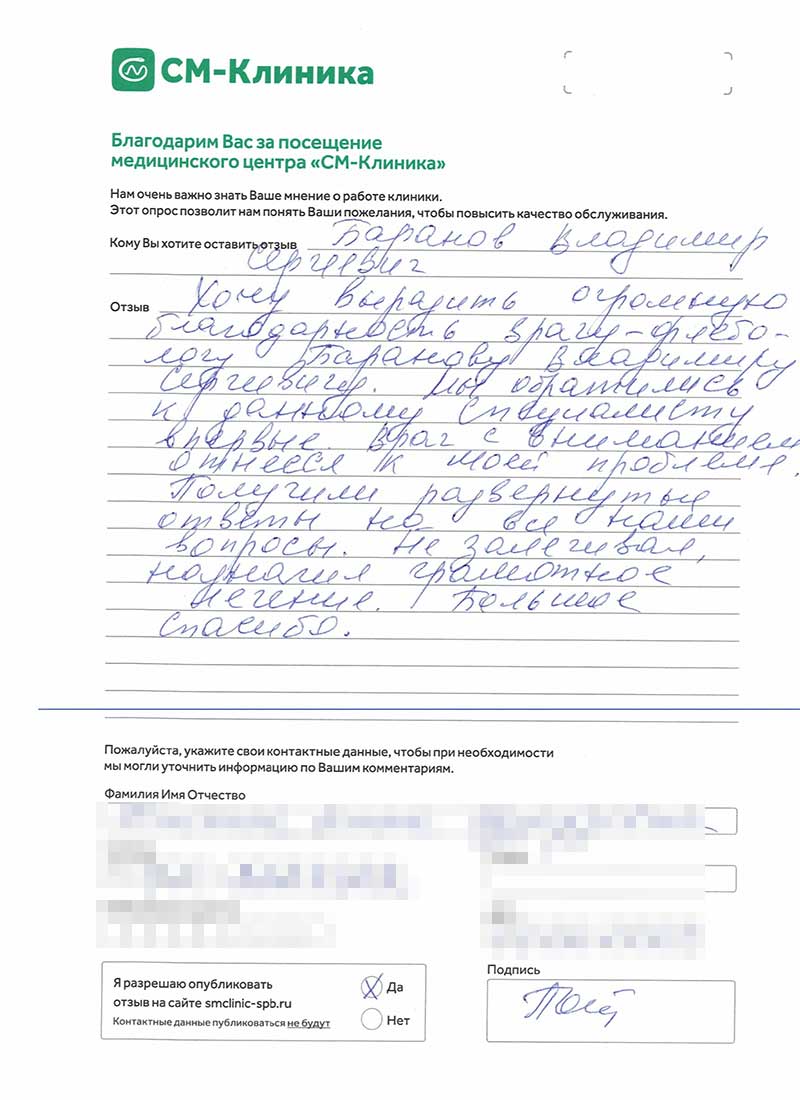 СМ-Клиника
Благодарим Вас за посещение
медицинского центра «СМ-Клиника»
Нам очень важно знать Ваше мнение о работе клиники.
Этот опрос позволит нам понять Ваши пожелания, чтобы повысить качество обслуживания.
Кому Вы хотите оставить отзыв Баранов Владимир
Сергеевич
Отзыв Хочу выразить огромную
благодарность врачу-флебо-
логу Баранову Владимиру
Сергеевичу. Мы обратились
к данному специалисту
впервые. Врач с вниманием
отнесся к моей проблеме.
Получили развернутые
ответы на все наши
вопросы. Не залечивал,
назначил грамотное
лечение. Большое
спасибо.
Пожалуйста, укажите свои контактные данные, чтобы при необходимости
мы могли уточнить информацию по Вашим комментариям.
Фамилия Имя Отчество
Я разрешаю опубликовать
отзыв на сайте smclinic-spb.ru
Контактные данные публиковаться не будут
Да
Нет
Подпись